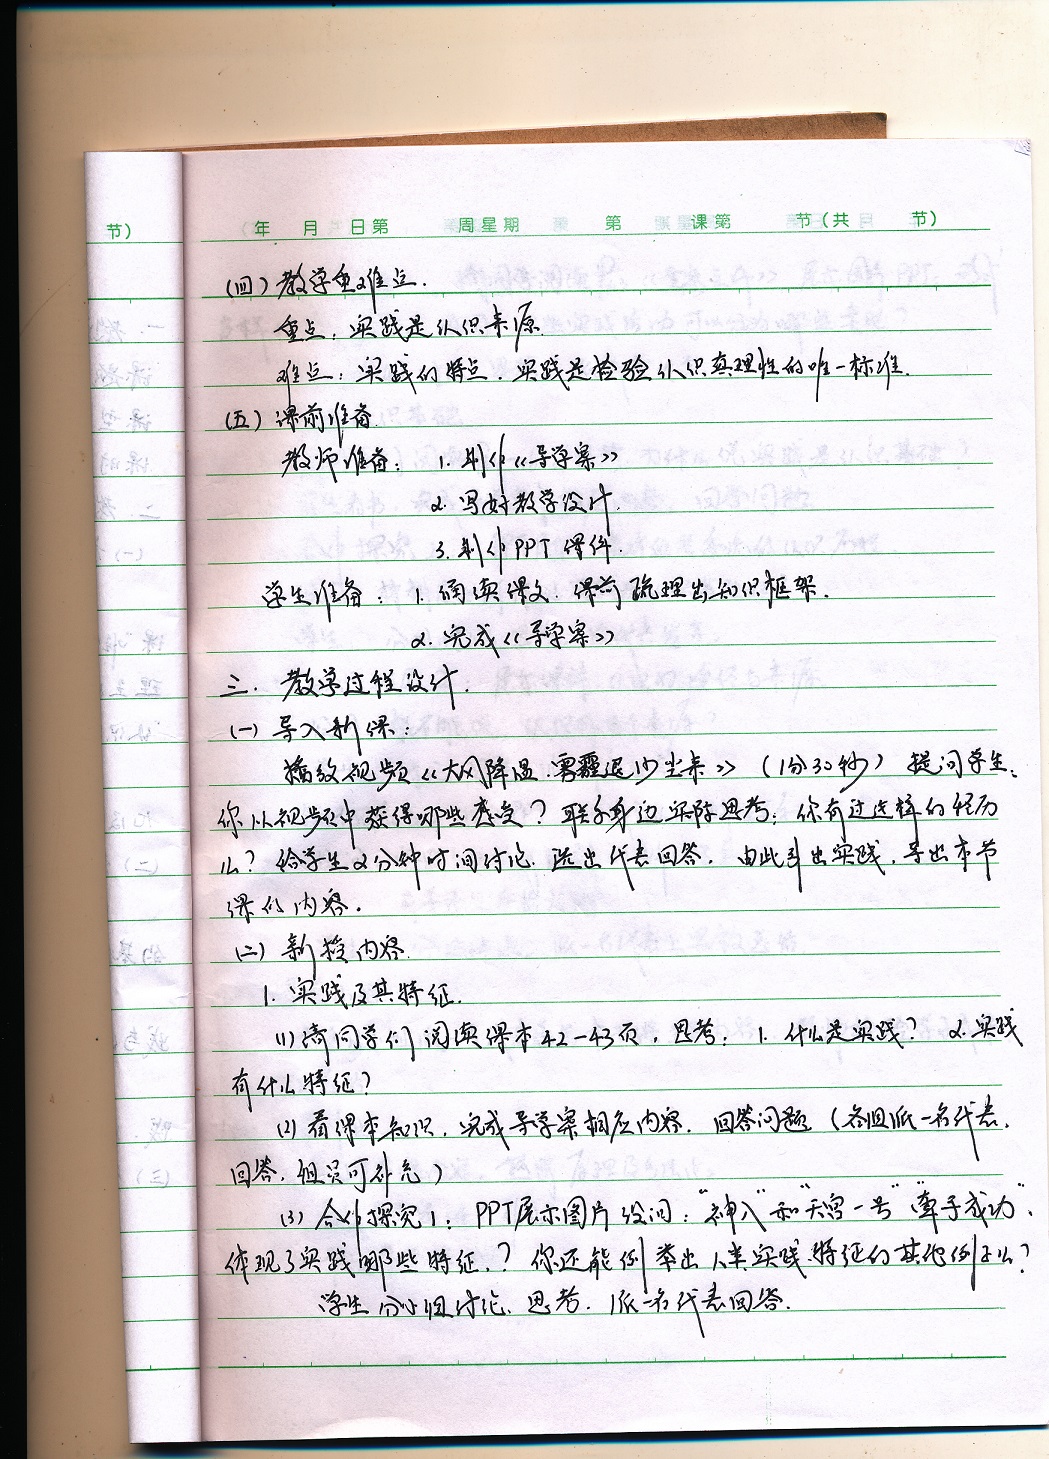 节)
年 月 日第 周星期 第 课第 节(共 节)
(四)教学重难点.
重点:实践是认识来源
难点:实践的特点.实践是检验认识真理性的唯一标准.
(五)课前准备
教师准备: 1.制作《导学案》
2.写好教学设计.
3.制作PPT课件.
学生准备: 1.阅读课文.课前疏理出知识框架.
2.完成《导学案》
三.教学过程设计.
(一)导入新课:
播放视频《大风降温.雾霾退沙尘来》(1分30秒)提问学生:
你从视频中获得哪些感受?联系身边实际思考:你有过这样的经历
么?给学生2分钟时间讨论.选出代表回答.由此引出实践,导出本节
课的内容.
(二)新授内容.
1.实践及其特征.
(1)请同学们阅读课本42-43页,思考:1.什么是实践?2.实践
有什么特征?
(2)看课本知识.完成导学案相应内容.回答问题(各组派一名代表
回答,组员可补充)
(3)合作探究1:PPT展示图片设问:"神八"和"天宫一号""牵手成功",
体现了实践哪些特征.?你还能例举出人类实践特征的其他例子么?
学生分小组讨论、思考.派一名代表回答.